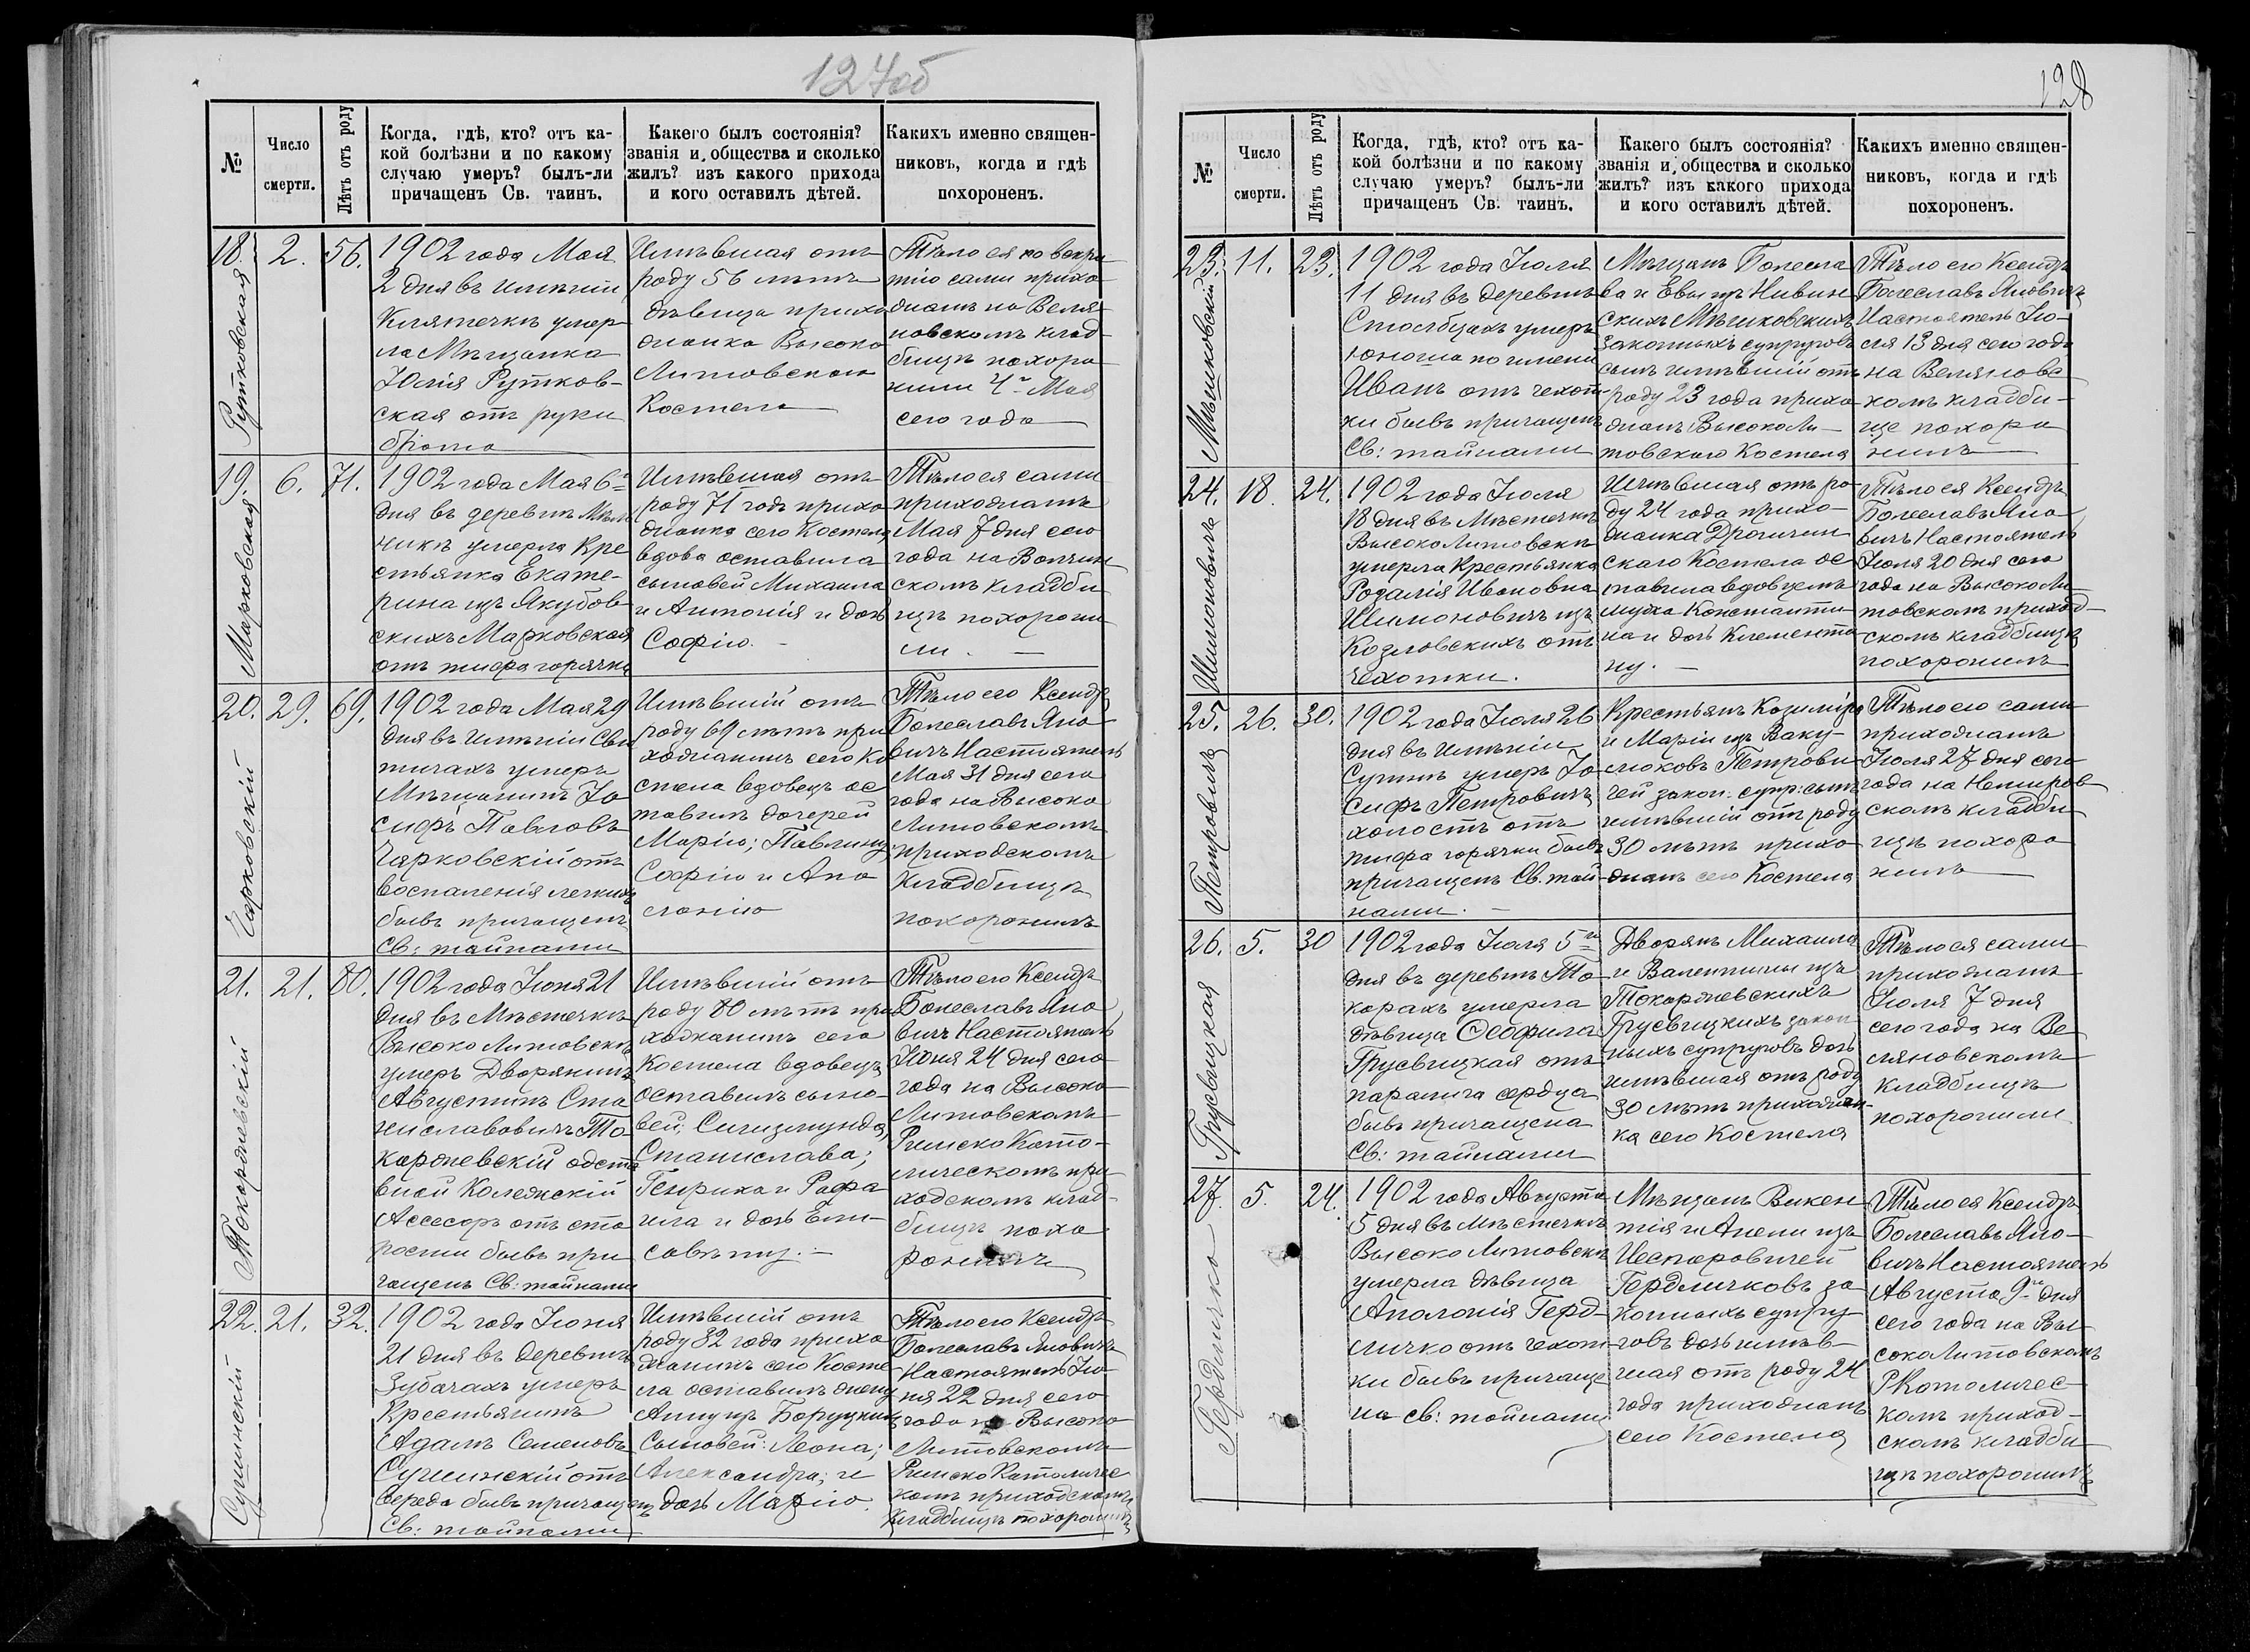 127об
№
Число
смерти.
Лѣтъ отъ роду
Когда, гдѣ, кто? отъ ка-
кой болѣзни и по какому
случаю умеръ? былъ-ли
причащенъ Св. таинъ.
Какего былъ состоянія?
званія и общества и сколько
жилъ? изъ какого прихода
и кого оставилъ дѣтей.
Какихъ именно священ-
никовъ, когда и гдѣ
похороненъ.
18.
Рутковская
2.
56.
1902 года Мая
2 дня въ имѣніи
умер
ла Мѣщанка
Юлія Рутков-
ская отъ руки
Имѣвшая отъ
роду 56 лѣтъ
дѣвица прихо
жанка Высоко
Литовскаго
Костела
Тѣло ея по вскры
тію сами прихо
жанъ на Веля
новскомъ клад
бищѣ похоро
нили 4го Мая
сего года
19.
Марковская.
6.
71.
1902 года Мая 6го
дня въ деревнѣ
умерла Кре
стьянка Екате-
рина изъ Якубов
скихъ Марковская
отъ тифа горячки
Имѣвшая отъ
роду 71 годъ прихо
жанка сего Костела
вдова оставила
сыновей Михаила
и Антонія и дочь
Софію. -
Тѣло ея сами
прихожанъ
Мая 7 дня сего
года на Волчин
скомъ кладби
щѣ похорони
ли. —
20.
Чарковскій
29.
69.
1902 года Мая 29
дня въ Имѣніи Сви
тичахъ умеръ
Мѣщанинъ Іо
сифъ Павловъ
Чарковскій отъ
воспаленія легкихъ
бывъ причащенъ
Св: тайнами
Имѣвшій отъ
роду 69 лѣтъ при
хожанинъ сего Ко
стела вдовецъ ос
тавилъ дочерей
Марію; Павлину
Софію и Апо
лонію
Тѣло его Ксендзъ
Болеславъ Яно
вичъ Настоятель
Мая 31 дня сего
года на Высоко
Литовскомъ
приходскомъ
Кладбищѣ
похоронилъ
21.
Токаржевскій
21.
80.
1902 года Іюня 21
дня въ Мѣстечкѣ
Высоко Литовскѣ
умеръ Дворянинъ
Августинъ Ста
ниславовичъ То-
каржевскій одста
вной Колежскій
Ассесоръ отъ ста
рости бывъ при
чащенъ Св: тайнами
Имѣвшій отъ
роду 80 лѣтъ при
хожанинъ сего
Костела вдовецъ
оставилъ сыно-
вей; Сигизмунда,
Станислава;
Генриха и Рафа
ила и дочь Ели-
савѣту. —
Тѣло его Ксендзъ
Болеславъ Яно
вичъ Настоятель
Іюня 24 дня сего
года на Высоко
Литовскомъ
Римско Като-
лическомъ при
ходскомъ клад-
бищѣ похо
ронилъ
22.
Сушинскій
21.
32.
1902 года Іюня
21 дня въ деревнѣ
Зубачахъ умеръ
Крестьянинъ
Адамъ Семеновъ
Сушинскій отъ
вереда бывъ причащенъ
Св: тайнами
Имѣвшій отъ
роду 32 года прихо
жанинъ сего Косте
ла оставилъ жену
Анну изъ Боруцкихъ
Сыновей: Леона;
Александра; и
дочь Марію.
Тѣло его Ксендзъ
Болеславъ Яновичъ
Настоятель Ію
ня 22 дня сего
года на Высоко
Литовскомъ
Римско Католичес
комъ приходскомъ
кладбищѣ похоронилъ
128
№
Число
смерти.
Лѣтъ отъ роду
Когда, гдѣ, кто? отъ ка-
кой болѣзни и по какому
случаю умеръ? былъ-ли
причащенъ Св. таинъ.
Какего былъ состоянія?
званія и общества и сколько
жилъ? изъ какого прихода
и кого оставилъ дѣтей.
Какихъ именно священ-
никовъ, когда и гдѣ
похороненъ.
23.
Мѣшковскій
11.
23.
1902 года Іюля
11 дня въ деревнѣ
Столбцахъ умеръ
юноша по имени
Иванъ отъ чехот
ки бывъ причащенъ
Св: тайнами
Мѣщанъ Болесла
ва и Евы изъ Нивин
скихъ Мѣшковскихъ
законныхъ супруговъ
сынъ имѣвшій отъ
роду 23 года прихо
жанъ Высоко Ли-
товскаго Костела
Тѣло его Ксендзъ
Болеславъ Яновичъ
Настоятель Ію-
ля 13 дня сего года
на Веляновс
комъ кладби-
ще похоро
нилъ
24.
Шимоновичъ
18.
24.
1902 года Іюля
18 дня въ Мѣстечкѣ
Высоко Литовскѣ
умерла Крестьянка
Розалія Ивановна
Шимоновичъ изъ
Козловскихъ отъ
Чехотки.
Имѣвшая отъ ро
ду 24 года прихо-
жанка Дрогичин
скаго Костела ос
тавила вдовцемъ
мужа Константи
на и дочь Клементи
ну. —
Тѣло ея Ксендзъ
Болеславъ Яно
вичъ Настоятель
Іюля 20 дня сего
года на Высоко Ли
товскомъ приход-
скомъ кладбищѣ
похоронилъ
25.
Петровичъ
26.
30.
1902 года Іюля 26
дня въ Имѣніи
умеръ Іо
сифъ Петровичъ
холостъ отъ
тифа горячки бывъ
причащенъ Св. тай-
нами. —
Крестьянъ Казиміра
и Маріи изъ Ваку-
люковъ Петрови
чей закон. супр: сынъ
имѣвшій отъ роду
30 лѣтъ прихо
жанъ сего Костела
Тѣло его сами
прихожанъ
Іюля 27 дня сего
года на Немиров
скомъ кладби
щѣ похоро
нилъ
26.
Грусвицкая
5.
30
1902 года Іюля 5го
дня въ деревнѣ То
карахъ умерла
дѣвица Ѳеофила
Грусвицкая отъ
паралича сердца
бывъ причащена
Св: тайнами
Дворянъ Михаила
и Валентины изъ
Токаржевскихъ
Грусвицкихъ закон
ныхъ супруговъ дочь
имѣвшая отъ роду
30 лѣтъ прихожан-
ка сего Костела
Тѣло ея сами
прихожанъ
Іюля 7 дня
сего года на Ве
ляновскомъ
кладбищѣ
похоронили
27.
Гердличко
5.
24.
1902 года Августа
5 дня въ мѣстечкѣ
Высоко Литовскѣ
умерла дѣвица
Аполонія Герд-
личко отъ чехот-
ки бывъ причаще
на св: тайнами
Мѣщанъ Викен
тія и Анели изъ
Несторовичей
Гердличковъ за
конныхъ супру
говъ дочь имѣв-
шая отъ роду 24
года прихожанъ
сего Костела
Тѣло ея Ксендзъ
Болеславъ Яно-
вичъ Настоятель
Августа 9го дня
сего года на Вы-
соко Литовскомъ
РКатоличес-
комъ приход-
скомъ кладби
щѣ похоронилъ